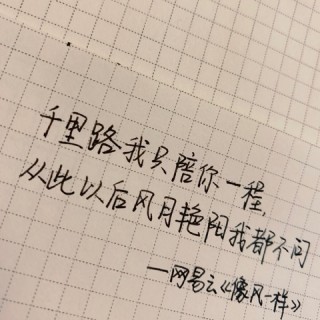 千里路我只陪你一程,
从此以后风月艳阳我都不问
—网易云《像风一样》